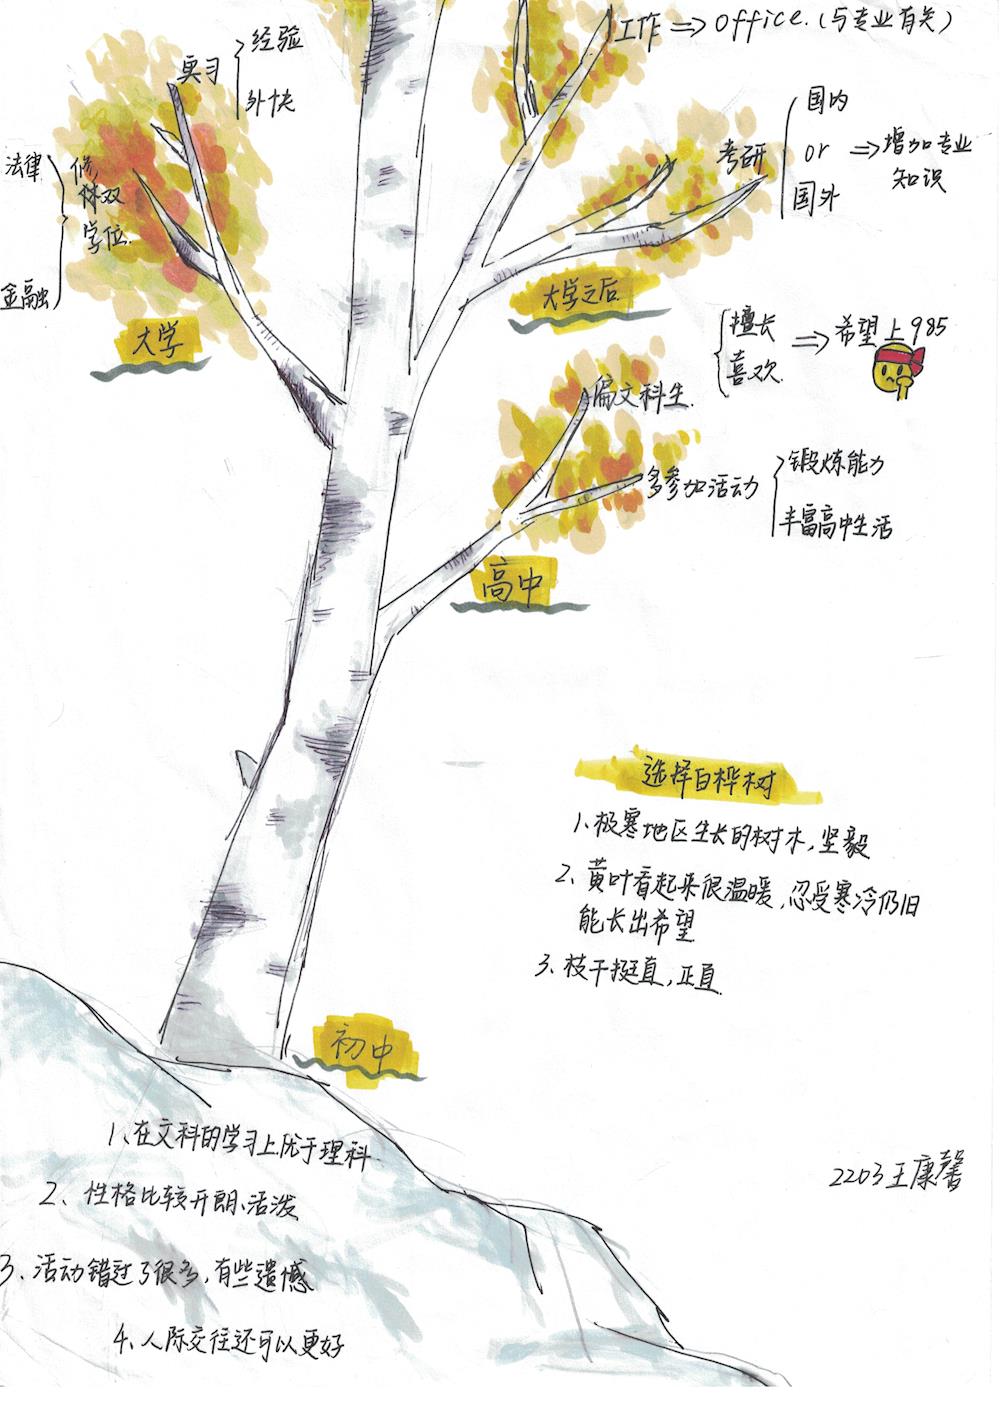 工作 ⇒ office.(与专业有关)
实习
经验
外快
国内
考研
or
⇒增加专业
知识
国外
法律
修
双
学位.
金融
大学之后
大学
擅长
喜欢.
⇒希望上985
偏文科生.
多参加活动
锻炼能力
丰富高中生活
高中
选择白桦树
1、极寒地区生长的树木,坚毅
2、黄叶看起来很温暖,忍受寒冷仍旧
能长出希望
3、枝干挺直,正直.
初中
1、在文科的学习上优于理科
2、性格比较开朗、活泼
3、活动错过了很多,有些遗憾
4、人际交往还可以更好
2203王康馨